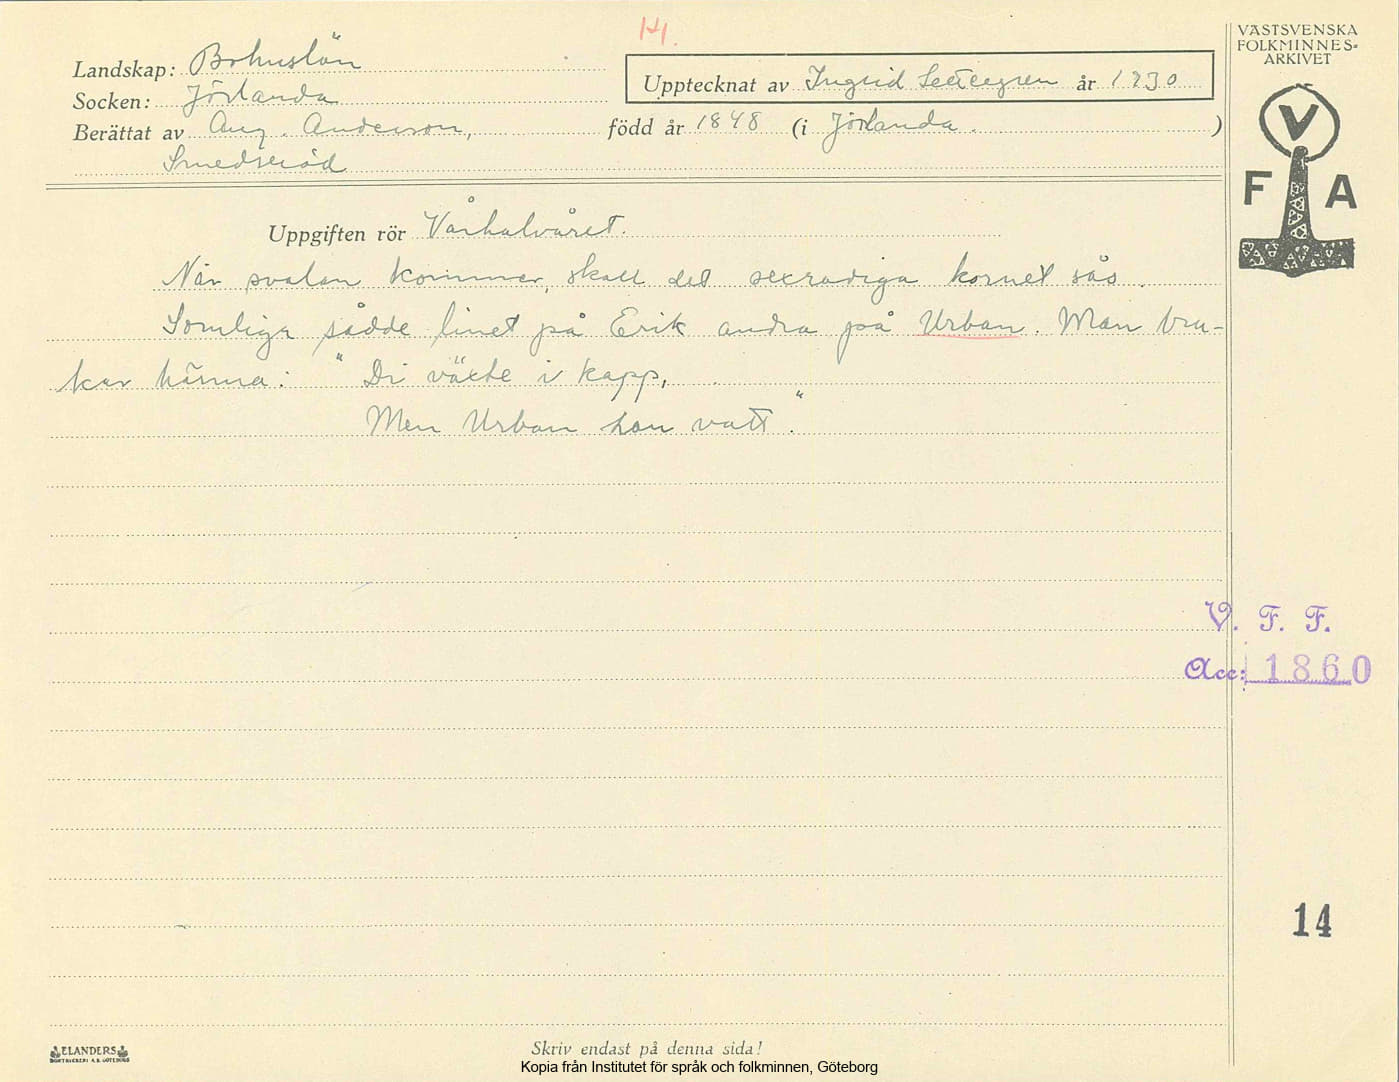 H.
VÄSTSVENSKA
FOLKMINNES-
ARKIVET
Landskap: Bohuslän
Upptecknat av Ingrid år 1930
Socken: Jörlanda
Berättat av Aug. Anderson, född år 1848 (i Jörlanda.)
V
F A
Uppgiften rör Vårhalvåret.
När svalan kommer, skall det sexradiga kornet sås.
Somliga sådde linet på Erik andra på Urban. Man bru-
kar hänna: "Di växte i kapp,
Men Urban han vatt."
V. F. F.
Acc: 1860
14
ELANDERS
BOKTRYCKERI A.B. GÖTEBORG
Skriv endast på denna sida!
Kopia från Institutet för språk och folkminnen, Göteborg